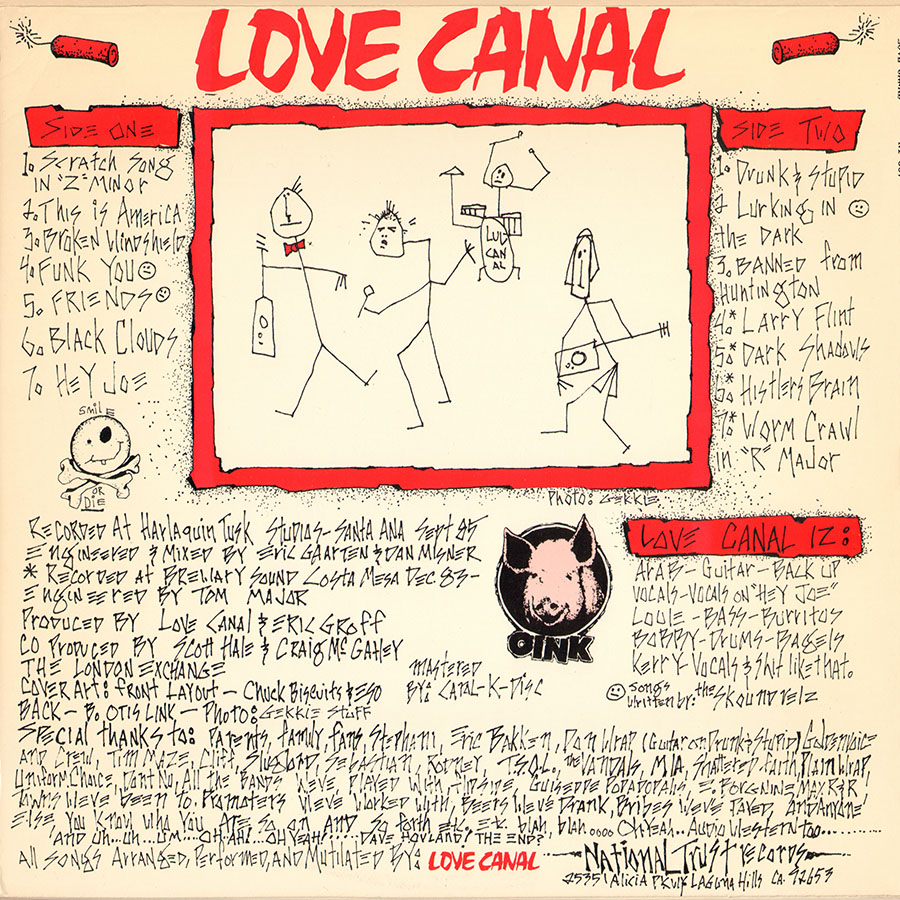 LOVE CANAL
SIDE ONE
1. SCRATCH SONG
IN "Z" MINOR
2. THIS IS AMERICA
3. BROKEN WINDSHIELD
4. FUNK YOU
5. FRIENDS
6. BLACK CLOUDS
7. HEY JOE
SMILE
OR
DIE
LUV
CAN
AL
SIDE TWO
1. DRUNK & STUPID
2 LURKING IN
THE DARK
3. BANNED FROM
HUNTINGTON
4.* LARRY FLINT
5.* DARK SHADOWS
6.* HISTLERS BRAIN
7.* WORM CRAWL
IN "R" MAJOR
PHOTO: GEKKIE
RECORDED AT HARLAQUIN TUSK STUDIOS-SANTA ANA SEPT 85
ENGINEERED & MIXED BY ERIC GAARTEN & DAN MISNER
* RECORDED AT BREWARY SOUND COSTA MESA DEC 83-
ENGINEERED BY TOM MAJOR
PRODUCED BY LOVE CANAL & ERIC GROFF
CO PRODUCED BY SCOTT HALE & CRAIG MC GAHEY
THE LONDON EXCHANGE
COVER ART: FRONT LAYOUT - CHUCK BISCUITS & ESO
BACK - B. OTIS LINK - PHOTO: GEKKIE STUFF
MASTERED
BY: CAPAL-K-DISC
OINK
LOVE CANAL IZ:
ARAB - GUITAR - BACK UP
VOCALS-VOCALS ON "HEY JOE"
LOUIE - BASS - BURRITOS
BOBBY - DRUMS - BAGELS
KERRY-VOCALS & SHIT LIKE THAT.
SONGS
WRITTEN BY: THE SKOUNDRELZ
SPECIAL THANKS TO: PARENTS, FAMILY, FANS, STEPHANI, ERIC BAKKEN, DON WRAP (GUITAR ON DRUNK & STUPID) GOLDENVOICE
AND CREW, TIM MAZE, CLIFF, SLUGLORD, SEBASTIAN, RODNEY, T.S.O.L., THE VANDALS, MIA, SHATTERED FAITH, PLAIN WRAP,
UNIFORM CHOICE, DONT NO, ALL THE BANDS WEVE PLAYED WITH, FLIPSIDE, GUISEPPE PAPADOPALIS, E. PORGNINE, MAX. R&R,
TOWNS WEVE BEEN TO. PROMOTERS WEVE WORKED WITH, BEERS WEVE DRANK, BRIBES WEVE PAYED, AND ANYONE
ELSE YOU KNOW WHO YOU ARE SO ON AND SO FORTH ETC. ETC. BLAH, BLAH.... OH YEAH.. AUDIO WESTERN TOO...........
AND UH...UH...UM....OH AH!..OH YEAH!.....DAVE HOVLAND, THE END?
ALL SONGS ARRANGED, PERFORMED, AND MUTILATED BY: LOVE CANAL
NATIONAL TRUST RECORDS
25351 ALICIA PKWY LAGUNA HILLS CA. 92653